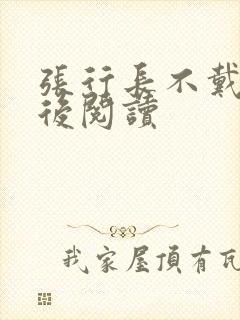 張行長不戴
後閱讀
我家屋頂有瓦